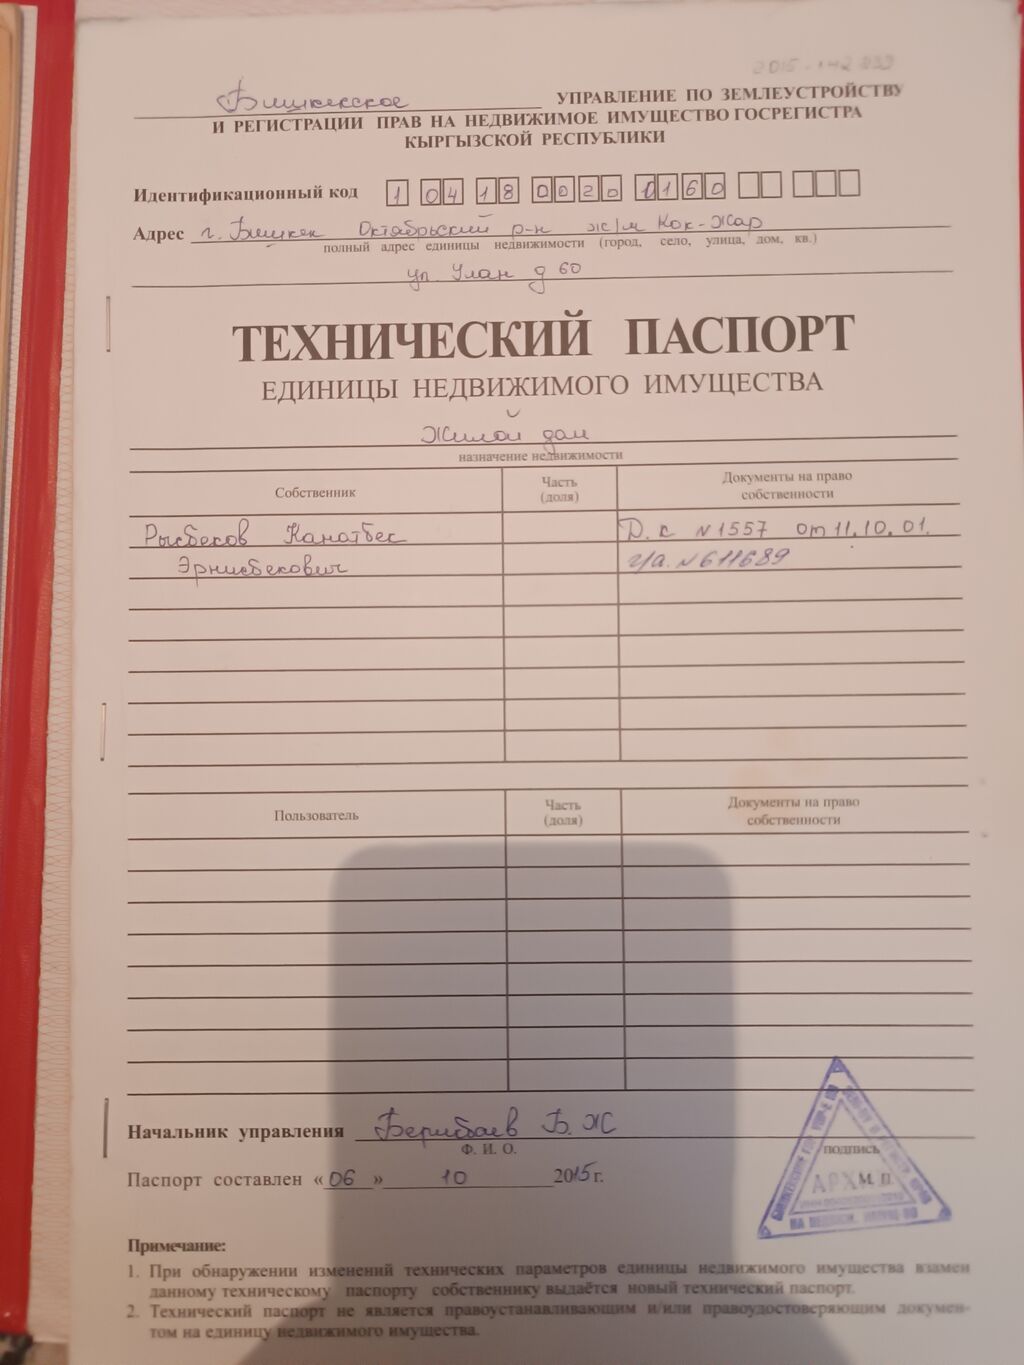 Бишкекское УПРАВЛЕНИЕ ПО ЗЕМЛЕУСТРОЙСТВУ
И РЕГИСТРАЦИИ ПРАВ НА НЕДВИЖИМОЕ ИМУЩЕСТВО ГОСРЕГИСТРА
КЫРГЫЗСКОЙ РЕСПУБЛИКИ
Идентификационный код 1 04 18 0020 0160
Адрес г. Бишкек Октябрьский р-н ж/м Кок-Жар
полный адрес единицы недвижимости (город, село, улица, дом, кв.)
ул. Улан д 60
ТЕХНИЧЕСКИЙ ПАСПОРТ
ЕДИНИЦЫ НЕДВИЖИМОГО ИМУЩЕСТВА
Жилой дом
назначение недвижимости
Собственник Часть (доля) Документы на право собственности
Рысбеков Канатбек Д.к N1557 от 11.10.01.
Эрнисбекович г/а. N611689
Пользователь Часть (доля) Документы на право собственности
Начальник управления Б.Ж
Ф. И. О. подпись
Паспорт составлен «06» 10 2015г. М. П.
АРХИВ
Примечание:
1. При обнаружении изменений технических параметров единицы недвижимого имущества взамен
данному техническому паспорту собственнику выдаётся новый технический паспорт.
2. Технический паспорт не является правоустанавливающим и/или правоудостоверяющим докумен-
том на единицу недвижимого имущества.